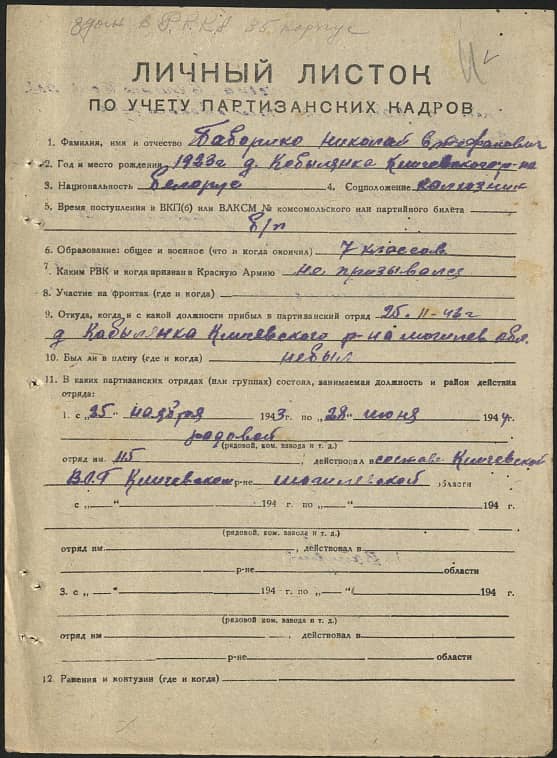 в Р.К.К.А 35 корпус
ЛИЧНЫЙ ЛИСТОК
ПО УЧЕТУ ПАРТИЗАНСКИХ КАДРОВ
1. Фамилия, имя и отчество Баборико Николай
2. Год и место рождения 1923г д. Кобылянка Кличевского р-на
3. Национальность белорус 4. Соцположение колхозник
5. Время поступления в ВКП(б) или ВЛКСМ № комсомольского или партийного билета
б/п
6. Образование: общее и военное (что и когда окончил) 7 классов
7. Каким РВК и когда призван в Красную Армию не призывался
8. Участие на фронтах (где и когда)
9. Откуда, когда и с какой должности прибыл в партизанский отряд 25.11-43г
д Кобылянка Кличевского р-на могилев обл.
10. Был ли в плену (где и когда) небыл
11. В каких партизанских отрядах (или группах) состоял, занимаемая должность и район действия
отряда:
1. с „25" ноября 1943г. по „28" июня 1944г.
рядовой
(рядовой, ком. взвода и т. д.)
отряд им. 115, действовал в составе Кличевской
В.О.Г Кличевском р-не могилевской области
с „ " 194 г. по „ " 194 г.
(рядовой, ком. взвода и т. д.)
отряд им. , действовал в
р-не области
3. с „ " 194 г. по „ " 194 г.
(рядовой ком. взвода и т. д.)
отряд им , действовал в
р-не области
12. Ранения и контузии (где и когда)